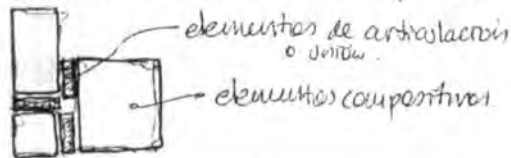 elementos de articulación
o unión.
elementos compositivos